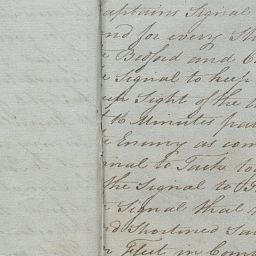 Captains Signal
and for every Sh
Bedford and C
Signal to keep
Sight of the
Minutes pas
Enemy as com
to Tack to
the Signal to
Signal that
Shortened Sai
Fleet in Com